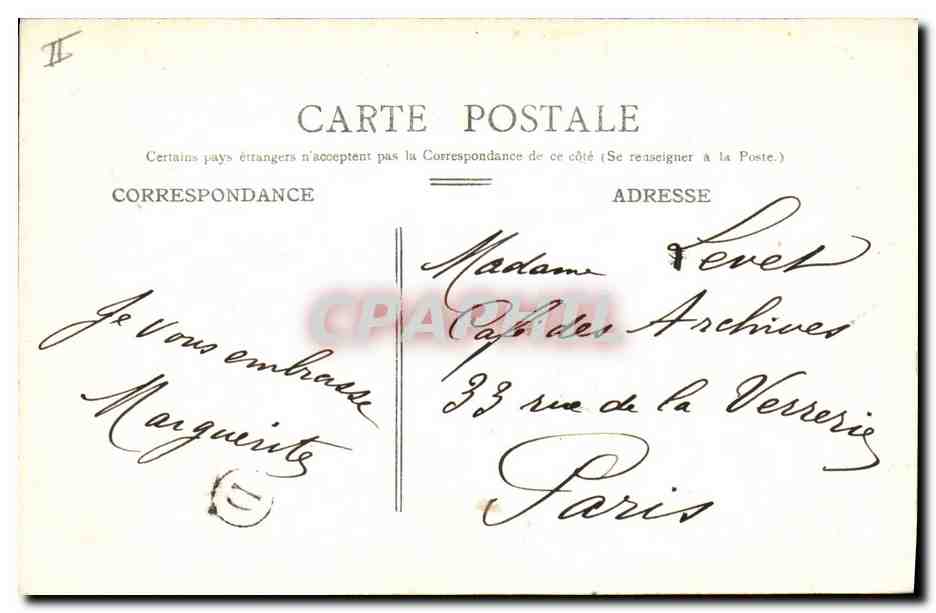 II
CARTE POSTALE
Certains pays étrangers n'acceptent pas la Correspondance de ce côté (Se renseigner à la Poste.)
CORRESPONDANCE
ADRESSE
Je vous embrasse
Marguerite
Madame Levet
Café des Archives
33 rue de la Verrerie
Paris
CPAPHIL